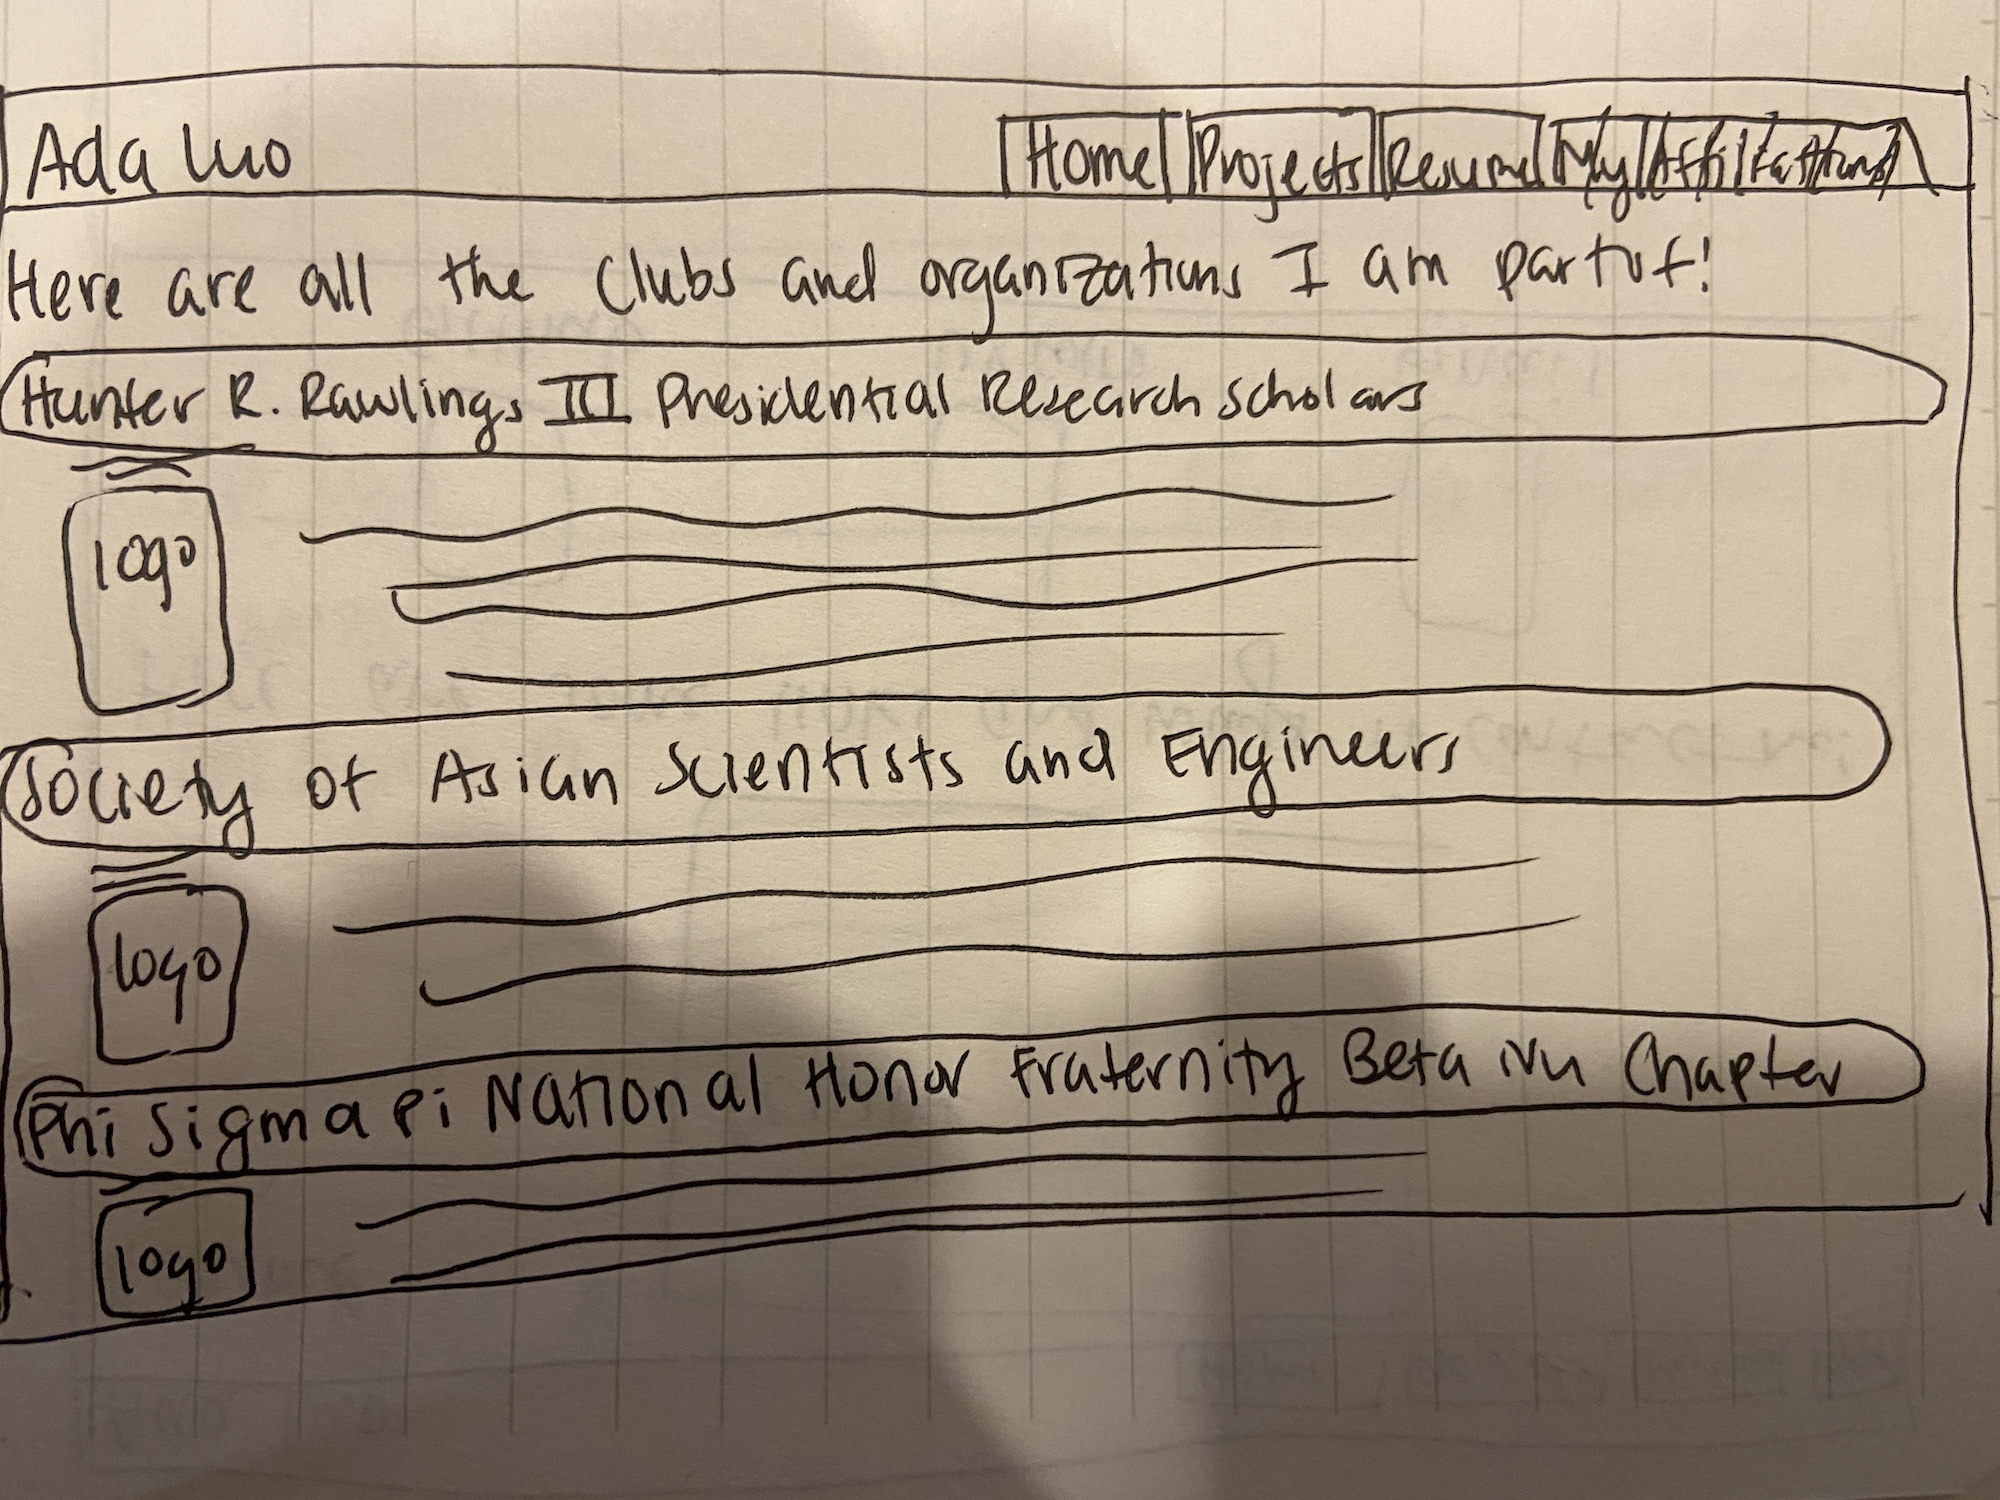 Ada Luo
Home Projects Resume My Affiliations
Here are all the Clubs and organizations I am part of!
Hunter R. Rawlings III Presidential Research Scholars
logo
Society of Asian Scientists and Engineers
logo
Phi Sigma Pi National Honor Fraternity Beta Nu Chapter
logo